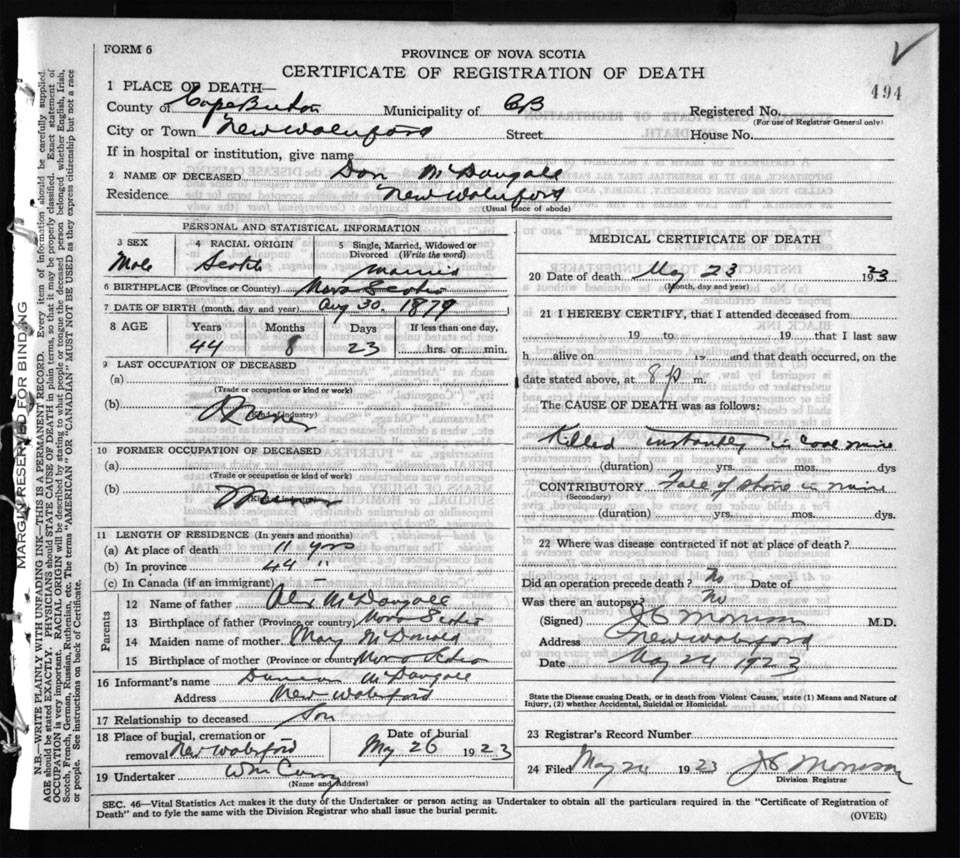 FORM 6
PROVINCE OF NOVA SCOTIA
CERTIFICATE OF REGISTRATION OF DEATH
494
1 PLACE OF DEATH—
County of Cape Breton Municipality of CB Registered No.
(For use of Registrar General only)
City or Town New Waterford Street House No.
If in hospital or institution, give name
2 NAME OF DECEASED Dan McDougall
Residence New Waterford
(Usual place of abode)
PERSONAL AND STATISTICAL INFORMATION
3 SEX 4 RACIAL ORIGIN 5 Single, Married, Widowed or Divorced (Write the word)
Male Scotch
6 BIRTHPLACE (Province or Country) Nova Scotia
7 DATE OF BIRTH (month, day, and year) Aug 30, 1879
8 AGE Years Months Days If less than one day,
44 8 23 hrs. or min.
9 LAST OCCUPATION OF DECEASED
(a)
(Trade or occupation or kind or work)
(b)
10 FORMER OCCUPATION OF DECEASED
(a)
(Trade or occupation or kind or work)
(b) Miner
11 LENGTH OF RESIDENCE (In years and months)
(a) At place of death 11 yrs
(b) In province 44 "
(c) In Canada (if an immigrant) –
Parents
12 Name of father Alex McDougall
13 Birthplace of father (Province or country) Nova Scotia
14 Maiden name of mother Mary McDonald
15 Birthplace of mother (Province or country) Nova Scotia
16 Informant's name Duncan McDougall
Address New Waterford
17 Relationship to deceased Son
18 Place of burial, cremation or removal New Waterford Date of burial May 26 1923
19 Undertaker Wm Curry
(Name and Address)
MEDICAL CERTIFICATE OF DEATH
20 Date of death May 23 1923
(Month, day and year)
21 I HEREBY CERTIFY, that I attended deceased from
19 to 19 that I last saw
h alive on 19 and that death occurred, on the
date stated above, at 8 p m.
The CAUSE OF DEATH was as follows:
Killed instantly in coal mine
(duration) yrs. mos. dys
CONTRIBUTORY Fall of stone in mine
(Secondary)
(duration) yrs. mos. dys.
22 Where was disease contracted if not at place of death?
Did an operation precede death? No Date of
Was there an autopsy? No
(Signed) J S Morrison M.D.
Address New Waterford
Date May 24 1923
State the Disease causing Death, or in death from Violent Causes, state (1) Means and Nature of
Injury, (2) whether Accidental, Suicidal or Homicidal.
23 Registrar's Record Number
24 Filed May 24 1923 J S Morrison
Division Registrar
SEC. 46—Vital Statistics Act makes it the duty of the Undertaker or person acting as Undertaker to obtain all the particulars required in the "Certificate of Registration of
Death" and to fyle the same with the Division Registrar who shall issue the burial permit.
(OVER)
MARGIN RESERVED FOR BINDING
N.B.—WRITE PLAINLY WITH UNFADING INK—THIS IS A PERMANENT RECORD. Every item of information should be carefully supplied.
AGE should be stated EXACTLY. PHYSICIANS should STATE CAUSE OF DEATH in plain terms, so that it may be properly classified. Exact statement of
OCCUPATION is very important. RACIAL ORIGIN will be described by stating to what people or tongue the deceased person belonged, whether English, Irish,
Scotch, French, German, Russian, Ruthenian, etc. The terms "AMERICAN" or "CANADIAN" MUST NOT BE USED as they express citizenship but not a race
or people. See instructions on back of Certificate.